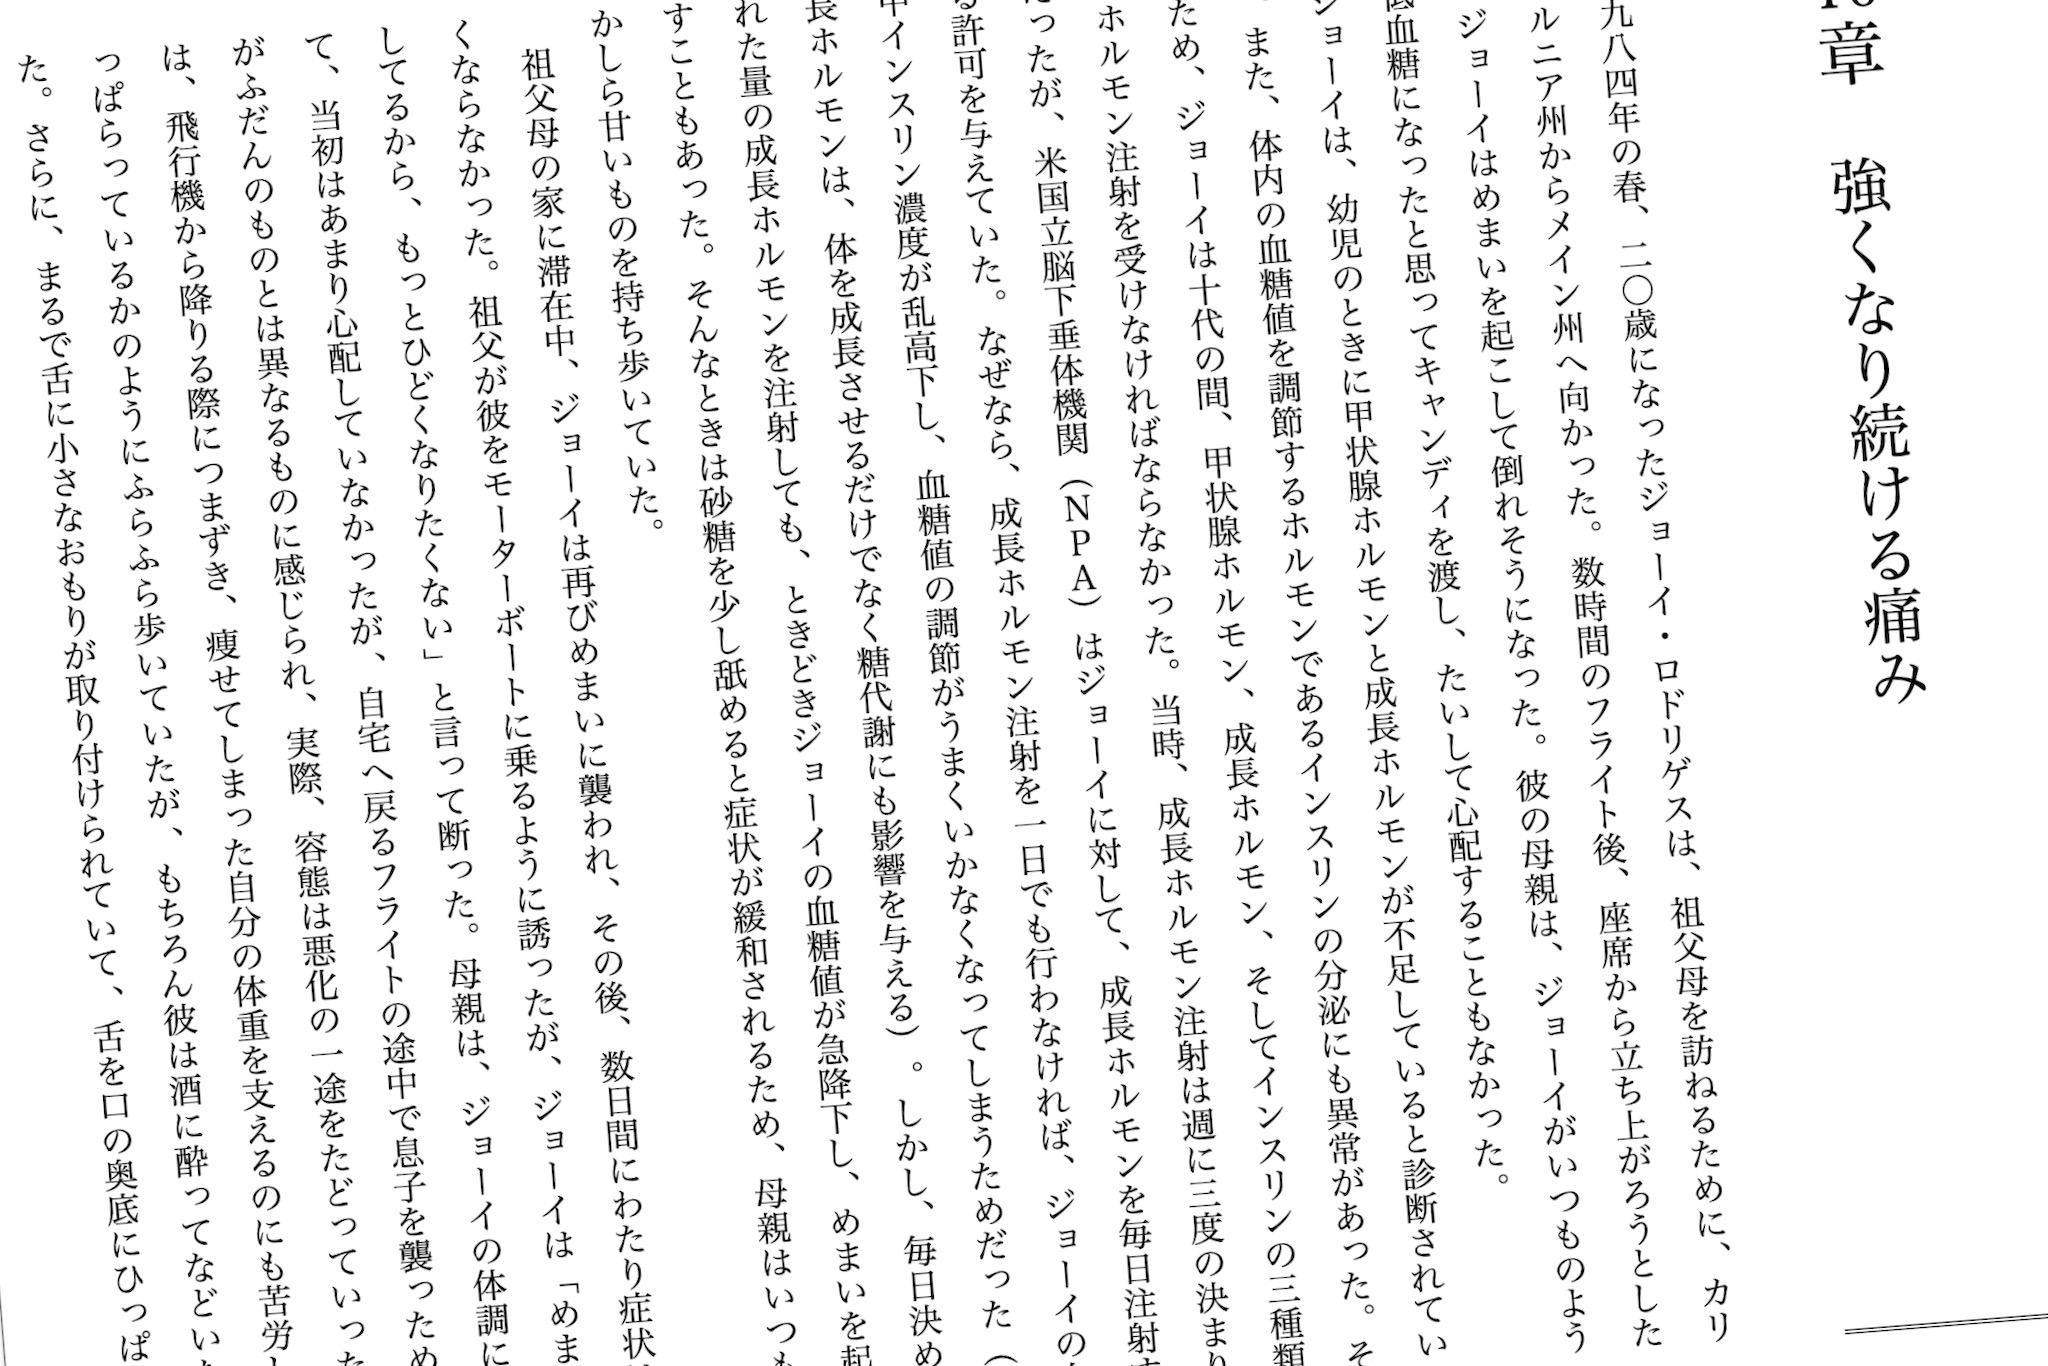 章　強くなり続ける痛み
九八四年の春、二〇歳になったジョーイ・ロドリゲスは、祖父母を訪ねるために、カリ
ルニア州からメイン州へ向かった。数時間のフライト後、座席から立ち上がろうとした
ジョーイはめまいを起こして倒れそうになった。彼の母親は、ジョーイがいつものよう
低血糖になったと思ってキャンディを渡し、たいして心配することもなかった。
ジョーイは、幼児のときに甲状腺ホルモンと成長ホルモンが不足していると診断されてい
。また、体内の血糖値を調節するホルモンであるインスリンの分泌にも異常があった。そ
ため、ジョーイは十代の間、甲状腺ホルモン、成長ホルモン、そしてインスリンの三種類
ホルモン注射を受けなければならなかった。当時、成長ホルモン注射は週に三度の決まり
だったが、米国立脳下垂体機関（NPA）はジョーイに対して、成長ホルモンを毎日注射す
る許可を与えていた。なぜなら、成長ホルモン注射を一日でも行わなければ、ジョーイの
中インスリン濃度が乱高下し、血糖値の調節がうまくいかなくなってしまうためだった（
長ホルモンは、体を成長させるだけでなく糖代謝にも影響を与える）。しかし、毎日決め
れた量の成長ホルモンを注射しても、ときどきジョーイの血糖値が急降下し、めまいを起
すこともあった。そんなときは砂糖を少し舐めると症状が緩和されるため、母親はいつも
かしら甘いものを持ち歩いていた。
祖父母の家に滞在中、ジョーイは再びめまいに襲われ、その後、数日間にわたり症状
くならなかった。祖父が彼をモーターボートに乗るように誘ったが、ジョーイは「めま
してるから、もっとひどくなりたくない」と言って断った。母親は、ジョーイの体調に
て、当初はあまり心配していなかったが、自宅へ戻るフライトの途中で息子を襲っため
がふだんのものとは異なるものに感じられ、実際、容態は悪化の一途をたどっていった
は、飛行機から降りる際につまずき、痩せてしまった自分の体重を支えるのにも苦労し
っぱらっているかのようにふらふら歩いていたが、もちろん彼は酒に酔ってなどいな
た。さらに、まるで舌に小さなおもりが取り付けられていて、舌を口の奥底にひっぱ